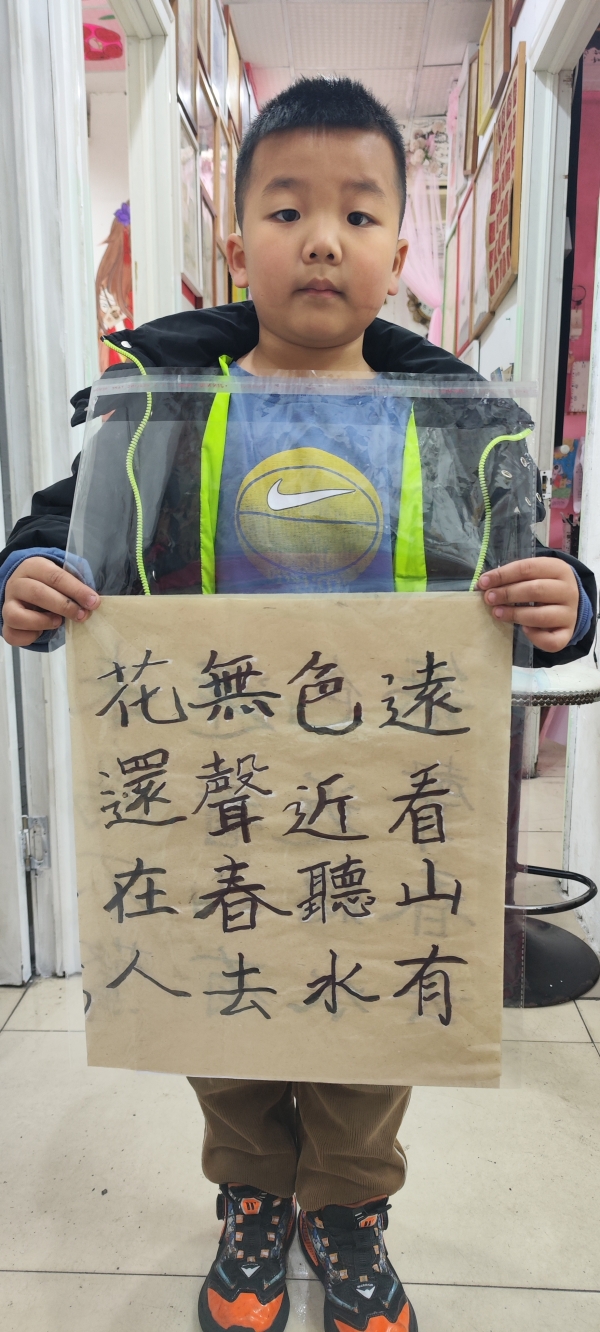 遠看山有
色近聽水
無聲春去
花還在人